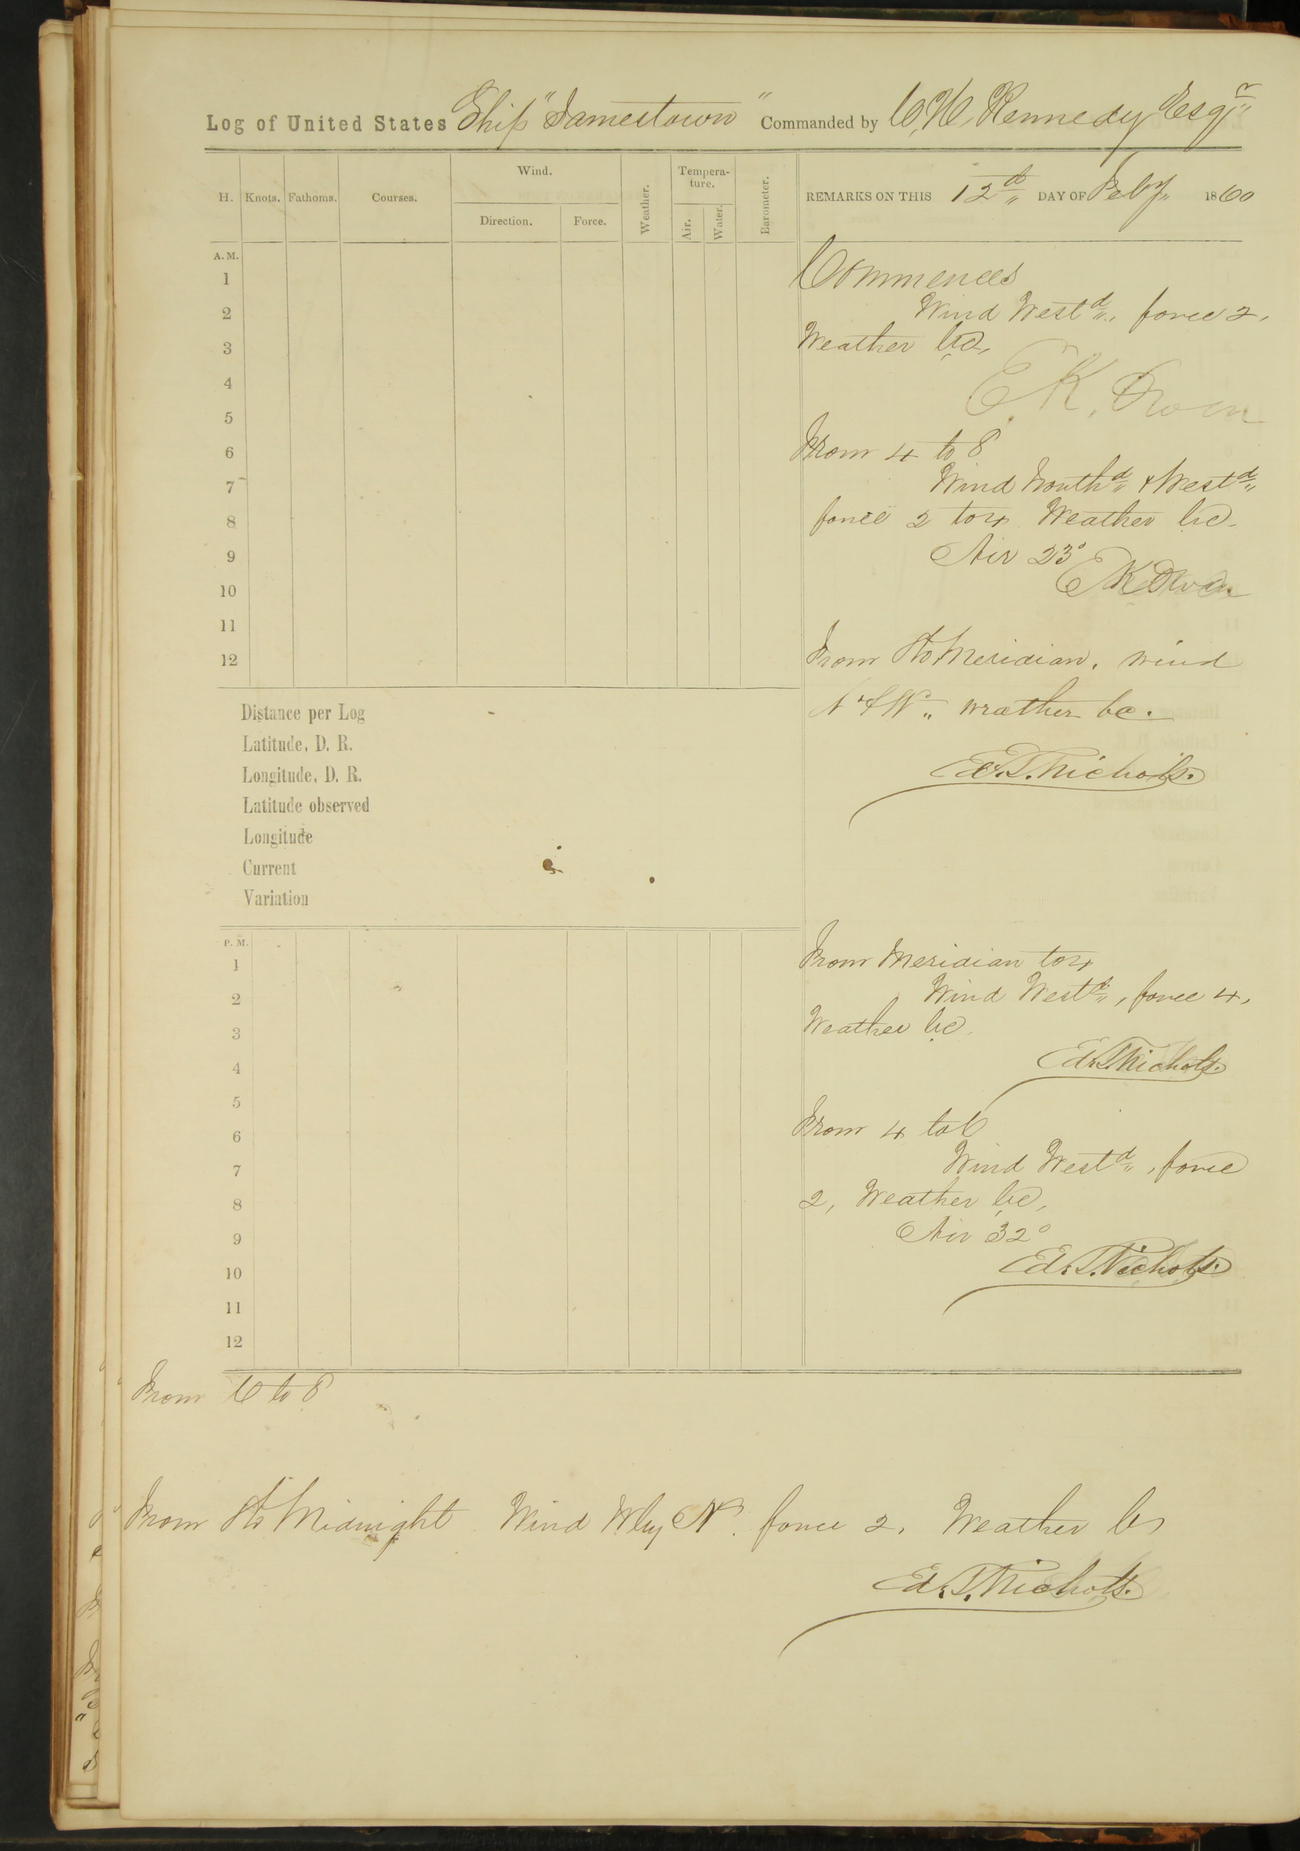 Log of United States Ship "Jamestown" Commanded by C. H. Kennedy Esqr
H. Knots. Fathoms. Courses. Wind. Direction. Force. Weather. Tempera-ture. Air. Water. Barometer. REMARKS ON THIS 12th DAY OF Feby 1860
A. M.
1
2
3
4
5
6
7
8
9
10
11
12
Commences
Wind Westd, force 2,
Weather bc,
E. K. Owen
From 4 to 8
Wind Southd & Westd
force 2 to 4 Weather bc.
Air 23°
E K Owen
From 8 to Meridian. wind
N & W. weather bc.
Ed. T. Nichols.
Distance per Log
Latitude, D. R.
Longitude, D. R.
Latitude observed
Longitude
Current
Variation
P. M.
1
2
3
4
5
6
7
8
9
10
11
12
From Meridian to 4
Wind Westd, force 4,
Weather bc.
Ed. T. Nichols.
From 4 to 6
Wind Westd, force
2, Weather bc,
Air 32°
Ed. T. Nichols.
From 6 to 8
From 8 to Midnight Wind Wby N. force 2. Weather bc
Ed. T. Nichols.